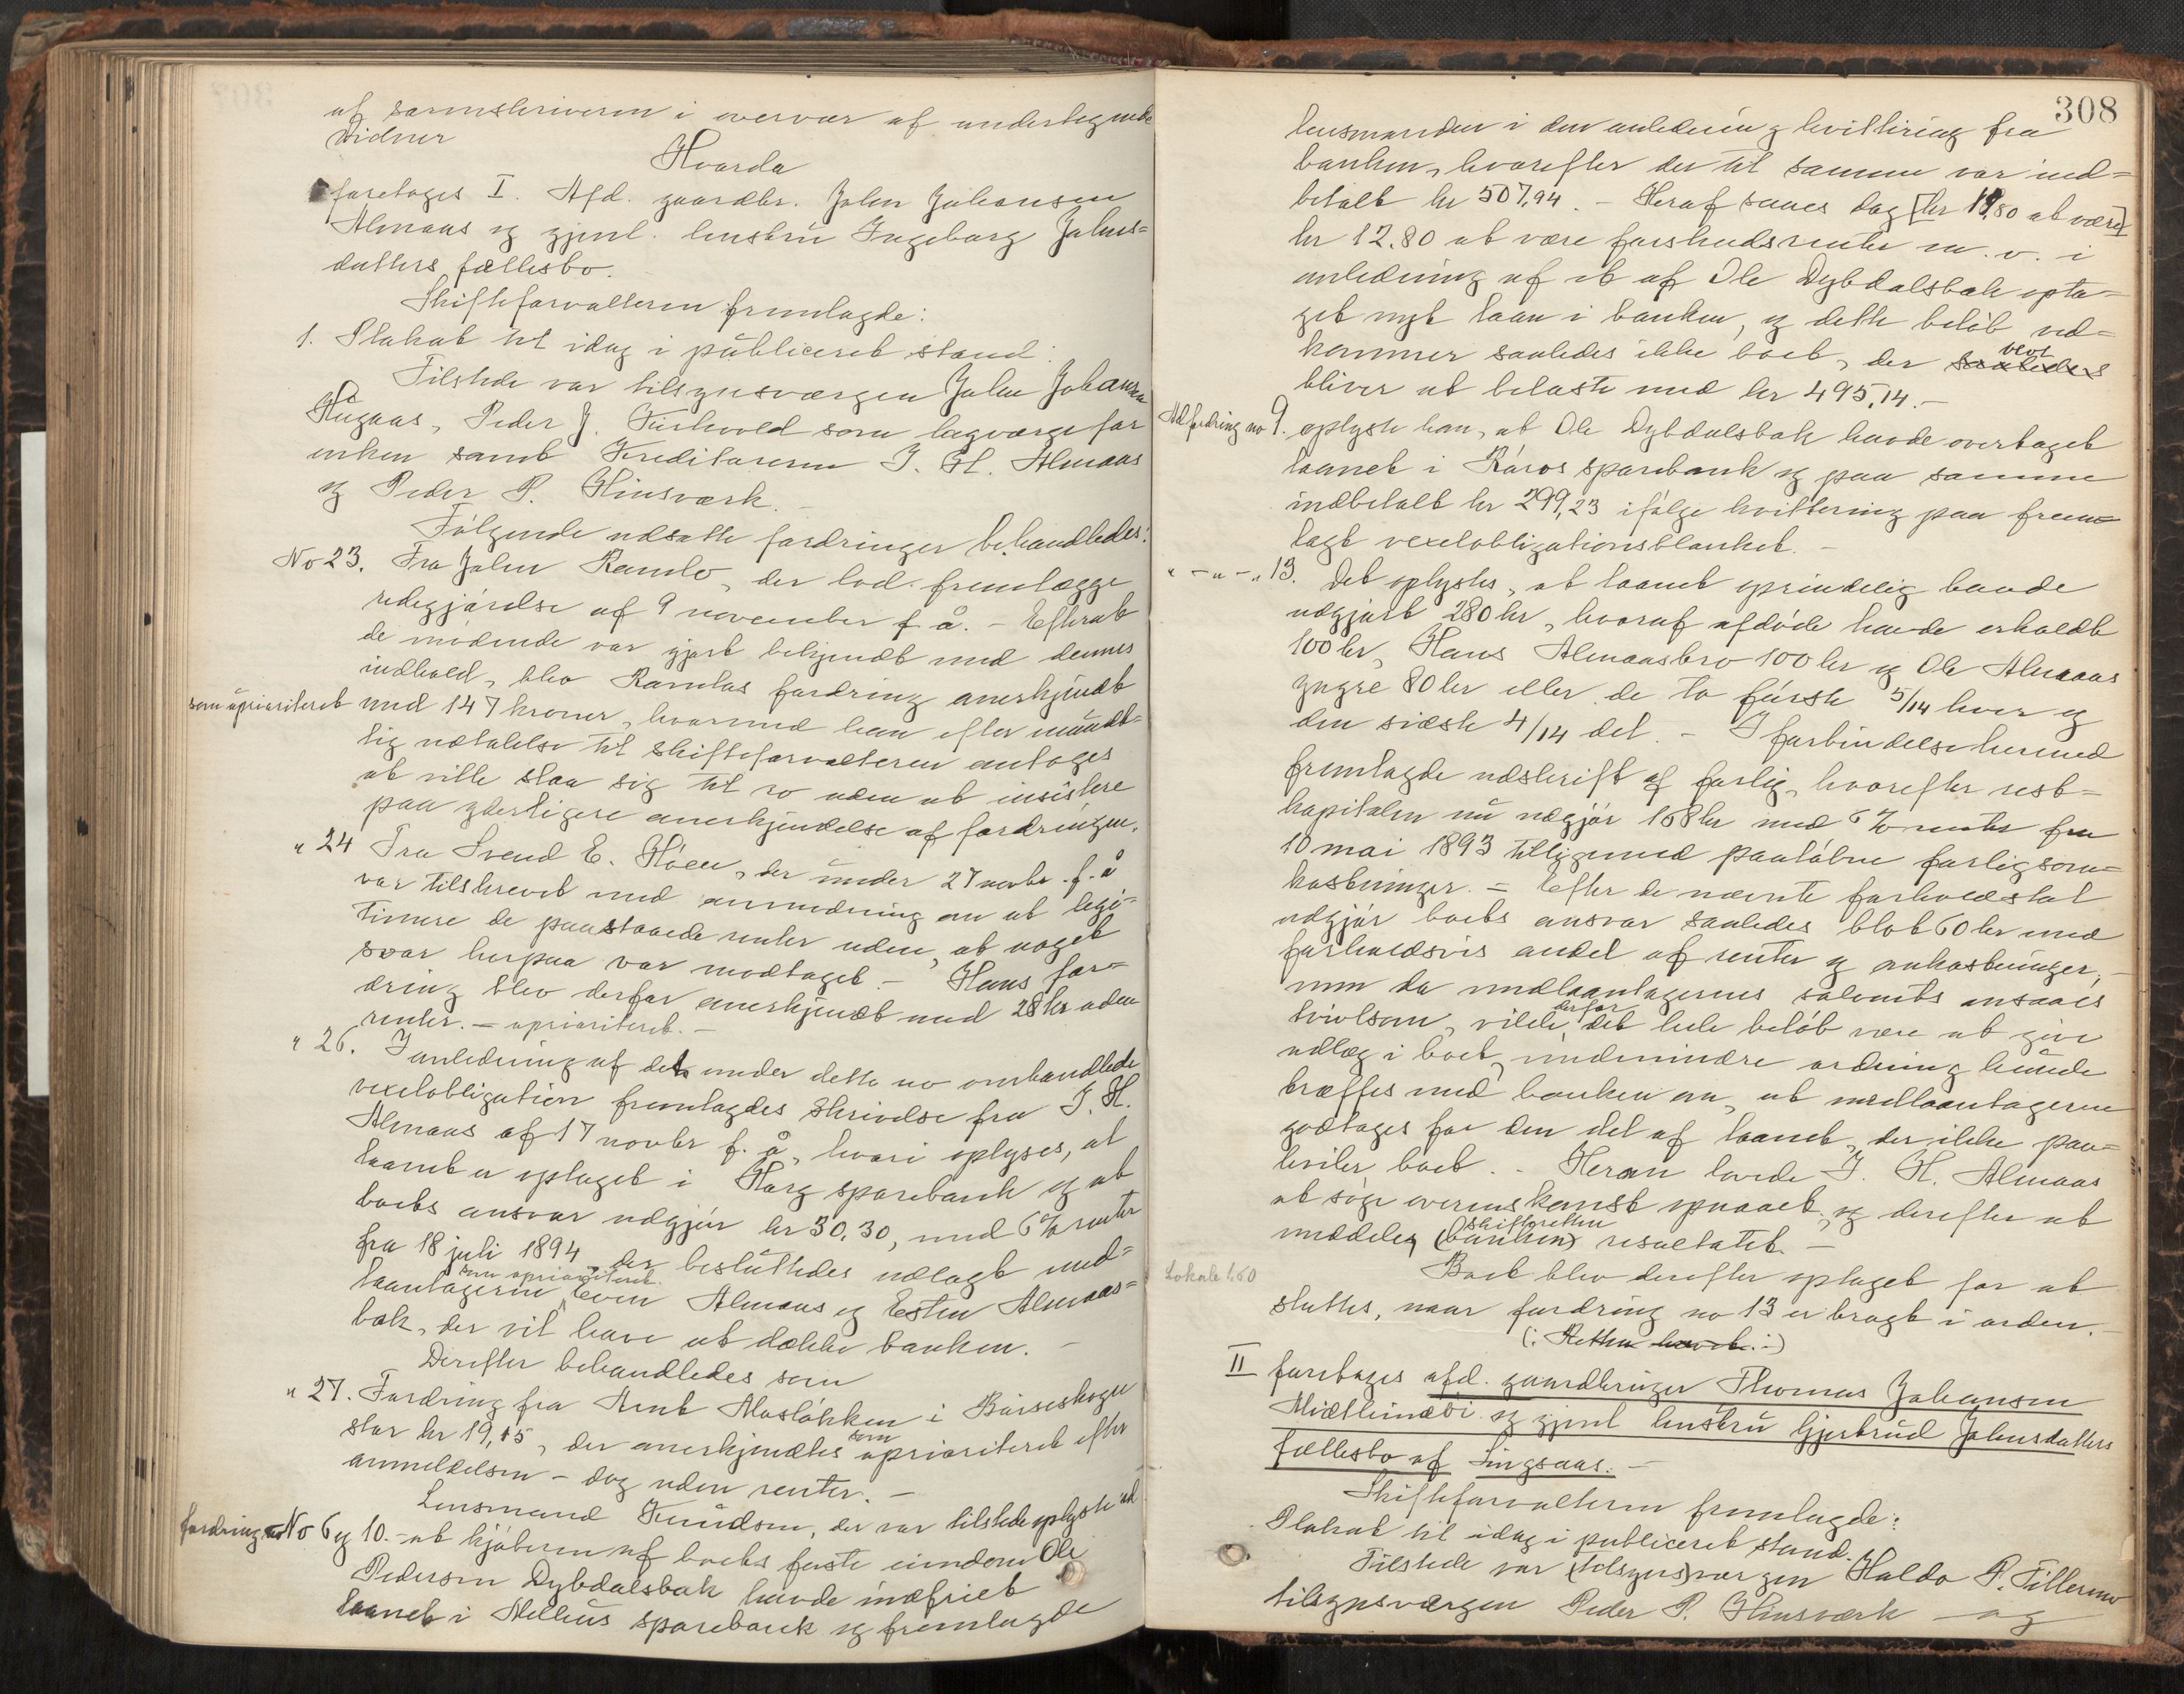 af sorenskriveren i overvær af undertegnede
Vidner
Hvorda
foretoges I. Afd. gaardbr. John Johansen
Almaas og gjenl. hustru Ingeborg Johns=
datters fællesbo.
Skifteforvalteren fremlagde:
1. Plakat til idag i publiceret stand.
Tilstede var tilsynsværgen John Johansen
Hugaas, Peder J. som lagværge for
enken samt Kreditorerne J. H. Almaas
og Peder P. Hinsværk.-
Følgende udsatte fordringer behandledes:
No 23. Fra John Ramlo, der lod fremlægge
redegjørelse af 9 november f. å. - Efterat
de mødende var gjort bekjendt med dennes
indhold, blev Ramlos fordring anerkjendt
som uprioriteret med 147 kroner, hvormed han efter mündt=
lig udtalelse til skifteforvalteren antoges
at ville slaa sig til ro uden at insistere
paa yderligere anerkjendelse af fordringen.
" 24 Fra Svend E. Høen, der under 27 novbr. f. å
var tilskrevet med anmodning om at legi=
timere de paastaaede renter uden, at noget
svar herpaa var modtaget. - Hans for=
dring blev derfor anerkjendt med 28 kr uden
renter. - uprioriteret. -
" 26. I anledning af det under dette no omhandlede
vexelobligation fremlagdes skrivelse fra J. H.
Almaas af 17 novbr f. å, hvori oplyses, at
laanet er optaget i Horg sparebank og at
boets ansvar udgjør kr 30,30, med 6% renter
fra 18 juli 1894, der besluttedes udlagt med=
som uprioriteret
laantagerne Even Almaas og Esten Almaas=
bak, der vil have at dække banken. -
Derefter behandledes som
" 27. Fordring fra Arnt Mosløkken i Børseskogn
som
stor kr 19,15, der anerkjendtes uprioriteret efter
anmeldelsen - dog uden renter. -
Lensmand Knudsen, der var tilstede oplyste ad
fordring No 6 og 10. - at kjøberen af boets faste eiendom Ole
Pedersen Dybdalsbak havde indfriet
laanet i Melhus sparebank og fremlagde
308
lensmanden i den anledning kvittering fra
banken, hvorefter der til samme var ind=
betalt kr 507,94. - Heraf saaes dog [kr 19,80 at være]
kr 12.80 at være forskudsrente m. v. i
anledning af et af Ole Dybdalsbak opta=
get nyt laan i banken, og dette beløb ved=
kommer saaledes ikke boet, der saaledes
blot
bliver at belaste med kr 495,14.-
Ad fordring no 9. oplyste han, at Ole Dybdalsbak havde overtaget
laanet i Røros sparebank og paa samme
indbetalt kr 299,23 ifølge kvittering paa frem=
lagt vexelobligationsblanket. -
" - " - " 13. Det oplystes, at laanet oprindelig havde
udgjort 280 kr, hvoraf afdøde havde erholdt
100 kr, Hans Almaasbro 100 kr og Ole Almaas
yngre 80 kr eller de to første 5/14 hver og
den sidste 4/14 del. - I forbindelse hermed
fremlagde udskrift af forlig, hvorefter rest=
kapitalen nu udgjør 168 kr med 6% rente fra
10 mai 1893 tilligemed paaløbne forligsom=
kostninger. - Efter de nævnte forholdstal
udgjør boets ansvar saaledes blot 60 kr med
forholdsvis andel af renter og omkostninger;-
men da medlaantagernes solvents ansaaes
derfor
tvivlsom, vilde det hele beløb være at give
udlæg i boet, mindemindre ordning kunde
træffes med banken om, at medlaantagerne
godtages for den del af laanet, der ikke paa=
hviler boet. - Herom lovede J. H. Almaas
at søge overenskomst opnaaet, og derefter at
skifteretten
meddele (banken) resultatet. -
Lokale 1.60
Boet blev derefter optaget for at
sluttes, naar fordring no 13 er bragt i orden. -
(: Retten hævet :)
II foretoges afd. gaardbruger Thomas Johansen
og gjenl hustru Gjertrud Johnsdatters
fællesbo af Singsaas. -
Skifteforvalteren fremlagde:
Plakat til idag i publiceret stand.
Tilstede var (tilsyns)værgen Haldo P. Fillermo
tilsynsværgen Peder P. Hinsværk - og